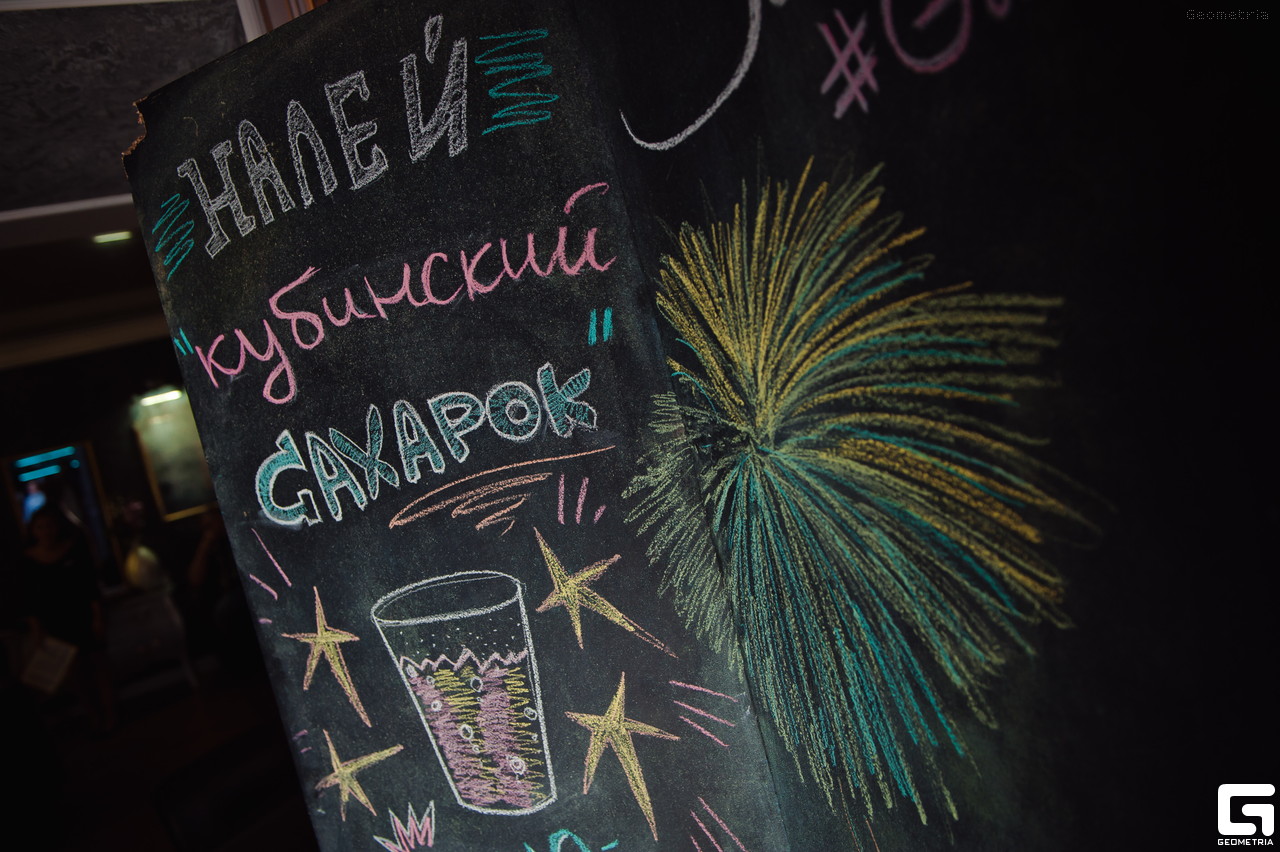 НАЛЕЙ
"кубинский"
САХАРОК
#G
Geometria
GEOMETRIA